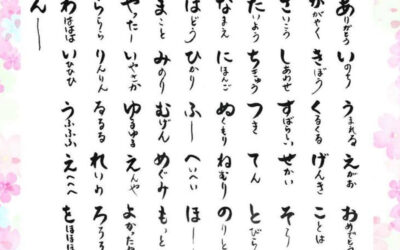 ありがとう いのち うまれる えがお おめでとう
かがやく きぼう くるくる げんき ことは
さいこう しあわせ すばらしい せかい そら
たいよう ちきゅう つき てん とびら
なまえ にほんご ぬくもり ねむり のりと
はどう ひかり ふー へいへい ほー
まこと みのり むげん めぐみ もっと
やったー いやさか ゆるゆる えんや よかったね
らららら りんりん るるる れいわ ろろろ
わははは いひひひ うふふふ えへへへ をほほほ
んー